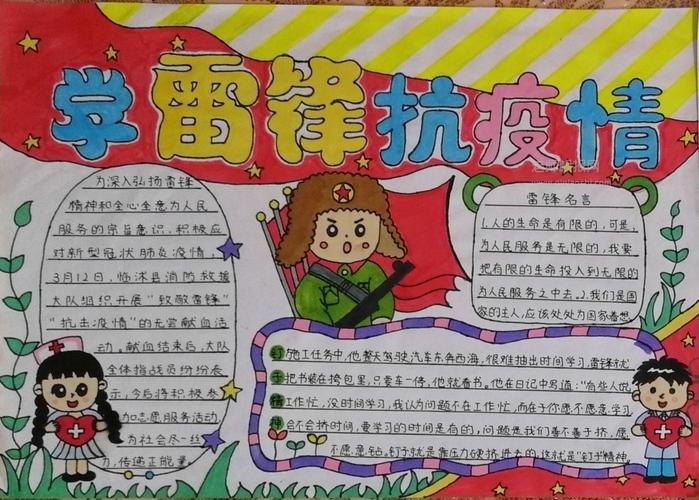 学雷锋抗疫情
为深入弘扬雷锋
精神和全心全意为人民
服务的宗旨意识,积极应
对新型冠状肺炎疫情,
3月12日,临沭县消防救援
大队组织开展“致敬雷锋”
“抗击疫情”的无尝献血活
动。献血结束后,大队
全体指战员纷纷表
示,今后将积极参
加志愿服务活动,
为社会尽一丝
力,传递正能量
雷锋名言
1.人的生命是有限的,可是,
为人民服务是无限的,我要
把有限的生命投入到无限的
为人民服务之中去。2.我们是国
家的主人,应该处处为国家着想
钉施工任务中,他整天驾驶汽车东奔西海,很难抽出时间学习,雷锋就
子把书装在挎包里,只要车一停,他就看书。他在日记中写道:“有些人说
精工作忙,没时间学习,我认为问题不在工作忙,而在于你愿不愿意学习
神会不会挤时间,要学习的时间是有的,问题是我们善不善于挤,愿
不愿意钻。钉子就是靠压力硬挤进去的,这就是“钉子”精神